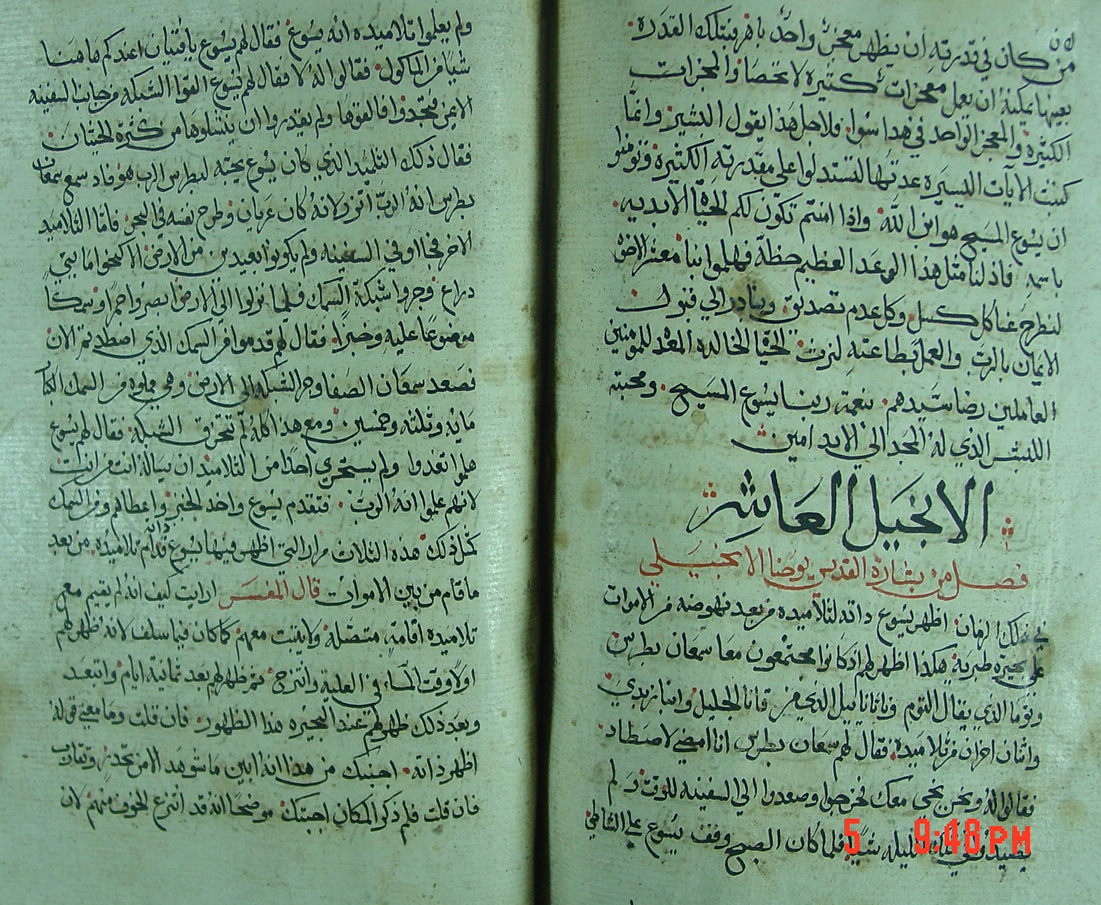 لان
من كان في قدرته ان يظهر معجز واحد باهر فبتلك القدره
بعينها يمكنه ان يعمل معجزات كثيرة لا تحصا والمعجزات
الكثيره والمعجز الواحد في هدا سوا. ولاجل هدا يقول البشير وانما
كتبت الايات اليسيره عددتها لتستدلوا على مقدرته الكثيره وتومنوا
ان يسوع المسيح هو ابن الله. واذا امنتم تكون لكم الحياة الابديه
باسمه. فاذ لنا مثل هدا الوعد العظيم حظة فهلموا بنا معشر الاخوه
لنطرح عنا كل كسل وكل عدم تصديق. ونبادر الي قبول
الايمان بالرب. والعمل بطاعته لنرث الحياة الخالده المعده للمومنين
العاملين رضا سيدهم. بنعمة ربنا يسوع المسيح. ومحبته
للبشر الذي له المجد الي الابد امين
الانجيل العاشر
فصل من بشارة القديس يوحنا الانجيلي
في ذلك الزمان. اظهر يسوع داته لتلاميده من بعد نهوضه من الاموات
على بحيرة طبريه. هكذا اظهر لهم اذ كانوا مجتمعون معا سمعان بطرس
وتوما الذي يقال التوم وناثانائيل الدي من قانا الجليل وابنا زبدي.
واثنان اخران من تلاميده. فقال لهم سمعان بطرس انا امضي لاصطاد
فقالوا له ونحن نجي معك فخرجوا وصعدوا الي السفينه للوقت ولم
يصيدوا في تلك الليله شيا. فلما كان الصبح وقف يسوع على الشاطي
5 9:48PM
ولم يعلموا تلاميده انه يسوع فقال لهم يسوع يا فتيان اعندكم هاهنا
شيا من الماكول. فقالوا له لا فقال لهم يسوع القوا الشبكه من جانب السفينه
الايمن فتجدوا فالقوها ولم يقدروا ان ينشلوها من كثرة الحيتان
فقال ذلك التلميد الذي كان يسوع يحبه لبطرس الرب هو فاد سمع سمعان
بطرس انه الرب اتزر لانه كان عريان وطرح نفسه في البحر. فاما التلاميد
الاخر فجاوا في السفينه ولم يكونوا بعيدين من الارض الا نحوا مايتي
دراع. وجروا شبكة السمك فلما نزلوا الي الارض ابصروا جمرا وسمكا
موضوعا عليه وخبزا. فقال لهم قدموا من السمك الذي اصطدتم الان
فصعد سمعان الصفا وجر الشبكه الي الارض وهي مملوه من السمك الكبار
مايه وثلثه وخمسين. ومع هذا كله لم تتخرق الشبكه فقال لهم يسوع
هلموا تغدوا. ولم يستجري احدا من التلاميد ان يساله انت من انت
لانهم علموا انه الرب. فتقدم يسوع واخد الخبز واعطاهم ومن السمك
كمثل ذلك هذه الثلاث مرار التي اظهر فيها يسوع داته قدام تلاميده. من بعد
ما قام من بين الاموات قال المفسر ارايت كيف انه لم يقيم مع
تلاميده اقامة متصله ولا يثبت معهم كما كان فيما سلف لانه ظهر لهم
اولا وقت المسا في العلية وانتزح. ثم ظهر لهم بعد ثمانية ايام وابتعد
وبعد ذلك ظهر لهم عند البحيره هذا الظهور. فان قلت وما معني قوله
اظهر داته. اجبتك من هدا انه ابين ما شوهد الا من تحدر وتقارب
فان قلت فلم ذكر المكان اجبتك موضحا انه قد انتزع الخوف منهم لان